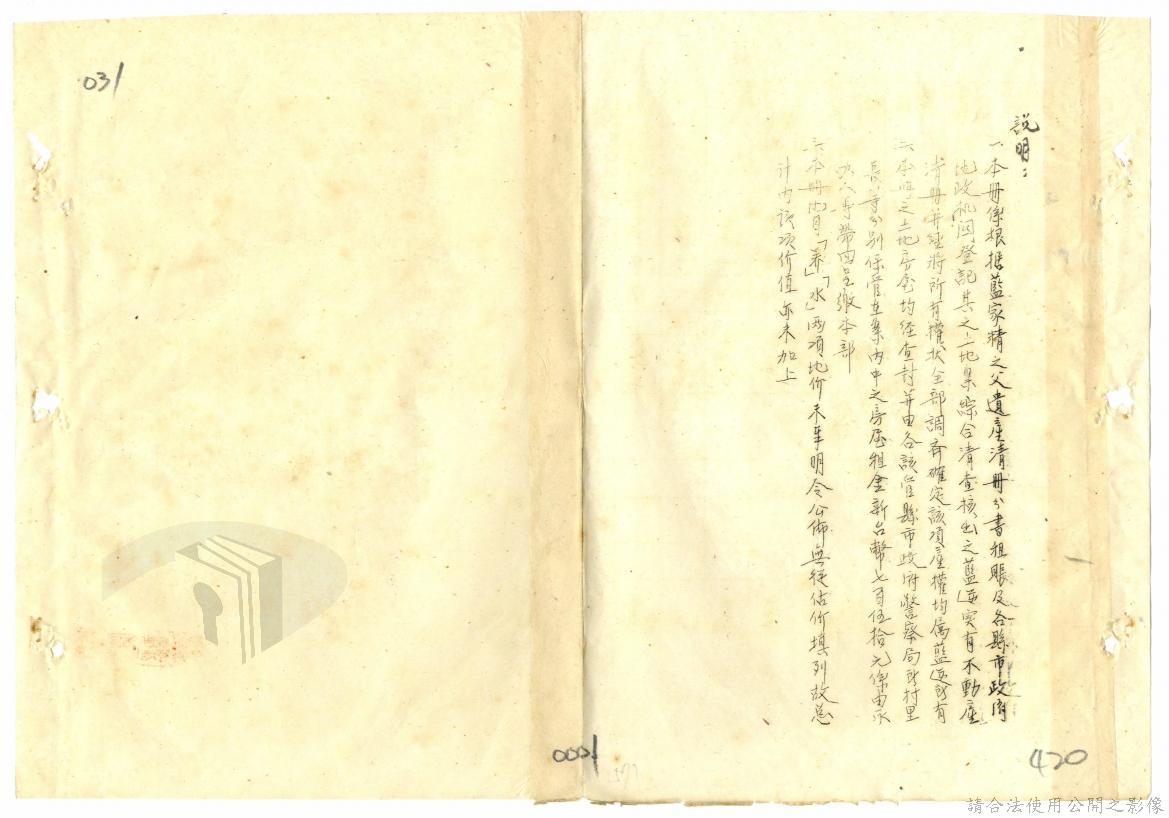 031
說明：
一本冊係根据藍家精之父遺產清冊分書租賬及各縣市政府
地政机関登記其之土地臬綜合清查核出之藍逆实有不動產
清冊并経將所有權狀全部調齐確定該項產權均属藍逆所有
二本冊之土地房屋均経查封並由各該管縣市政府警察局所村里
長等分別保管在案內中之房屋租金新台幣七百伍拾元係由
帶回呈繳本部
三本冊內目「养」「水」两項地价未奉明令公佈無従估价填列故总
计内該項价值亦未加上
0001
420
請合法使用公開之影像